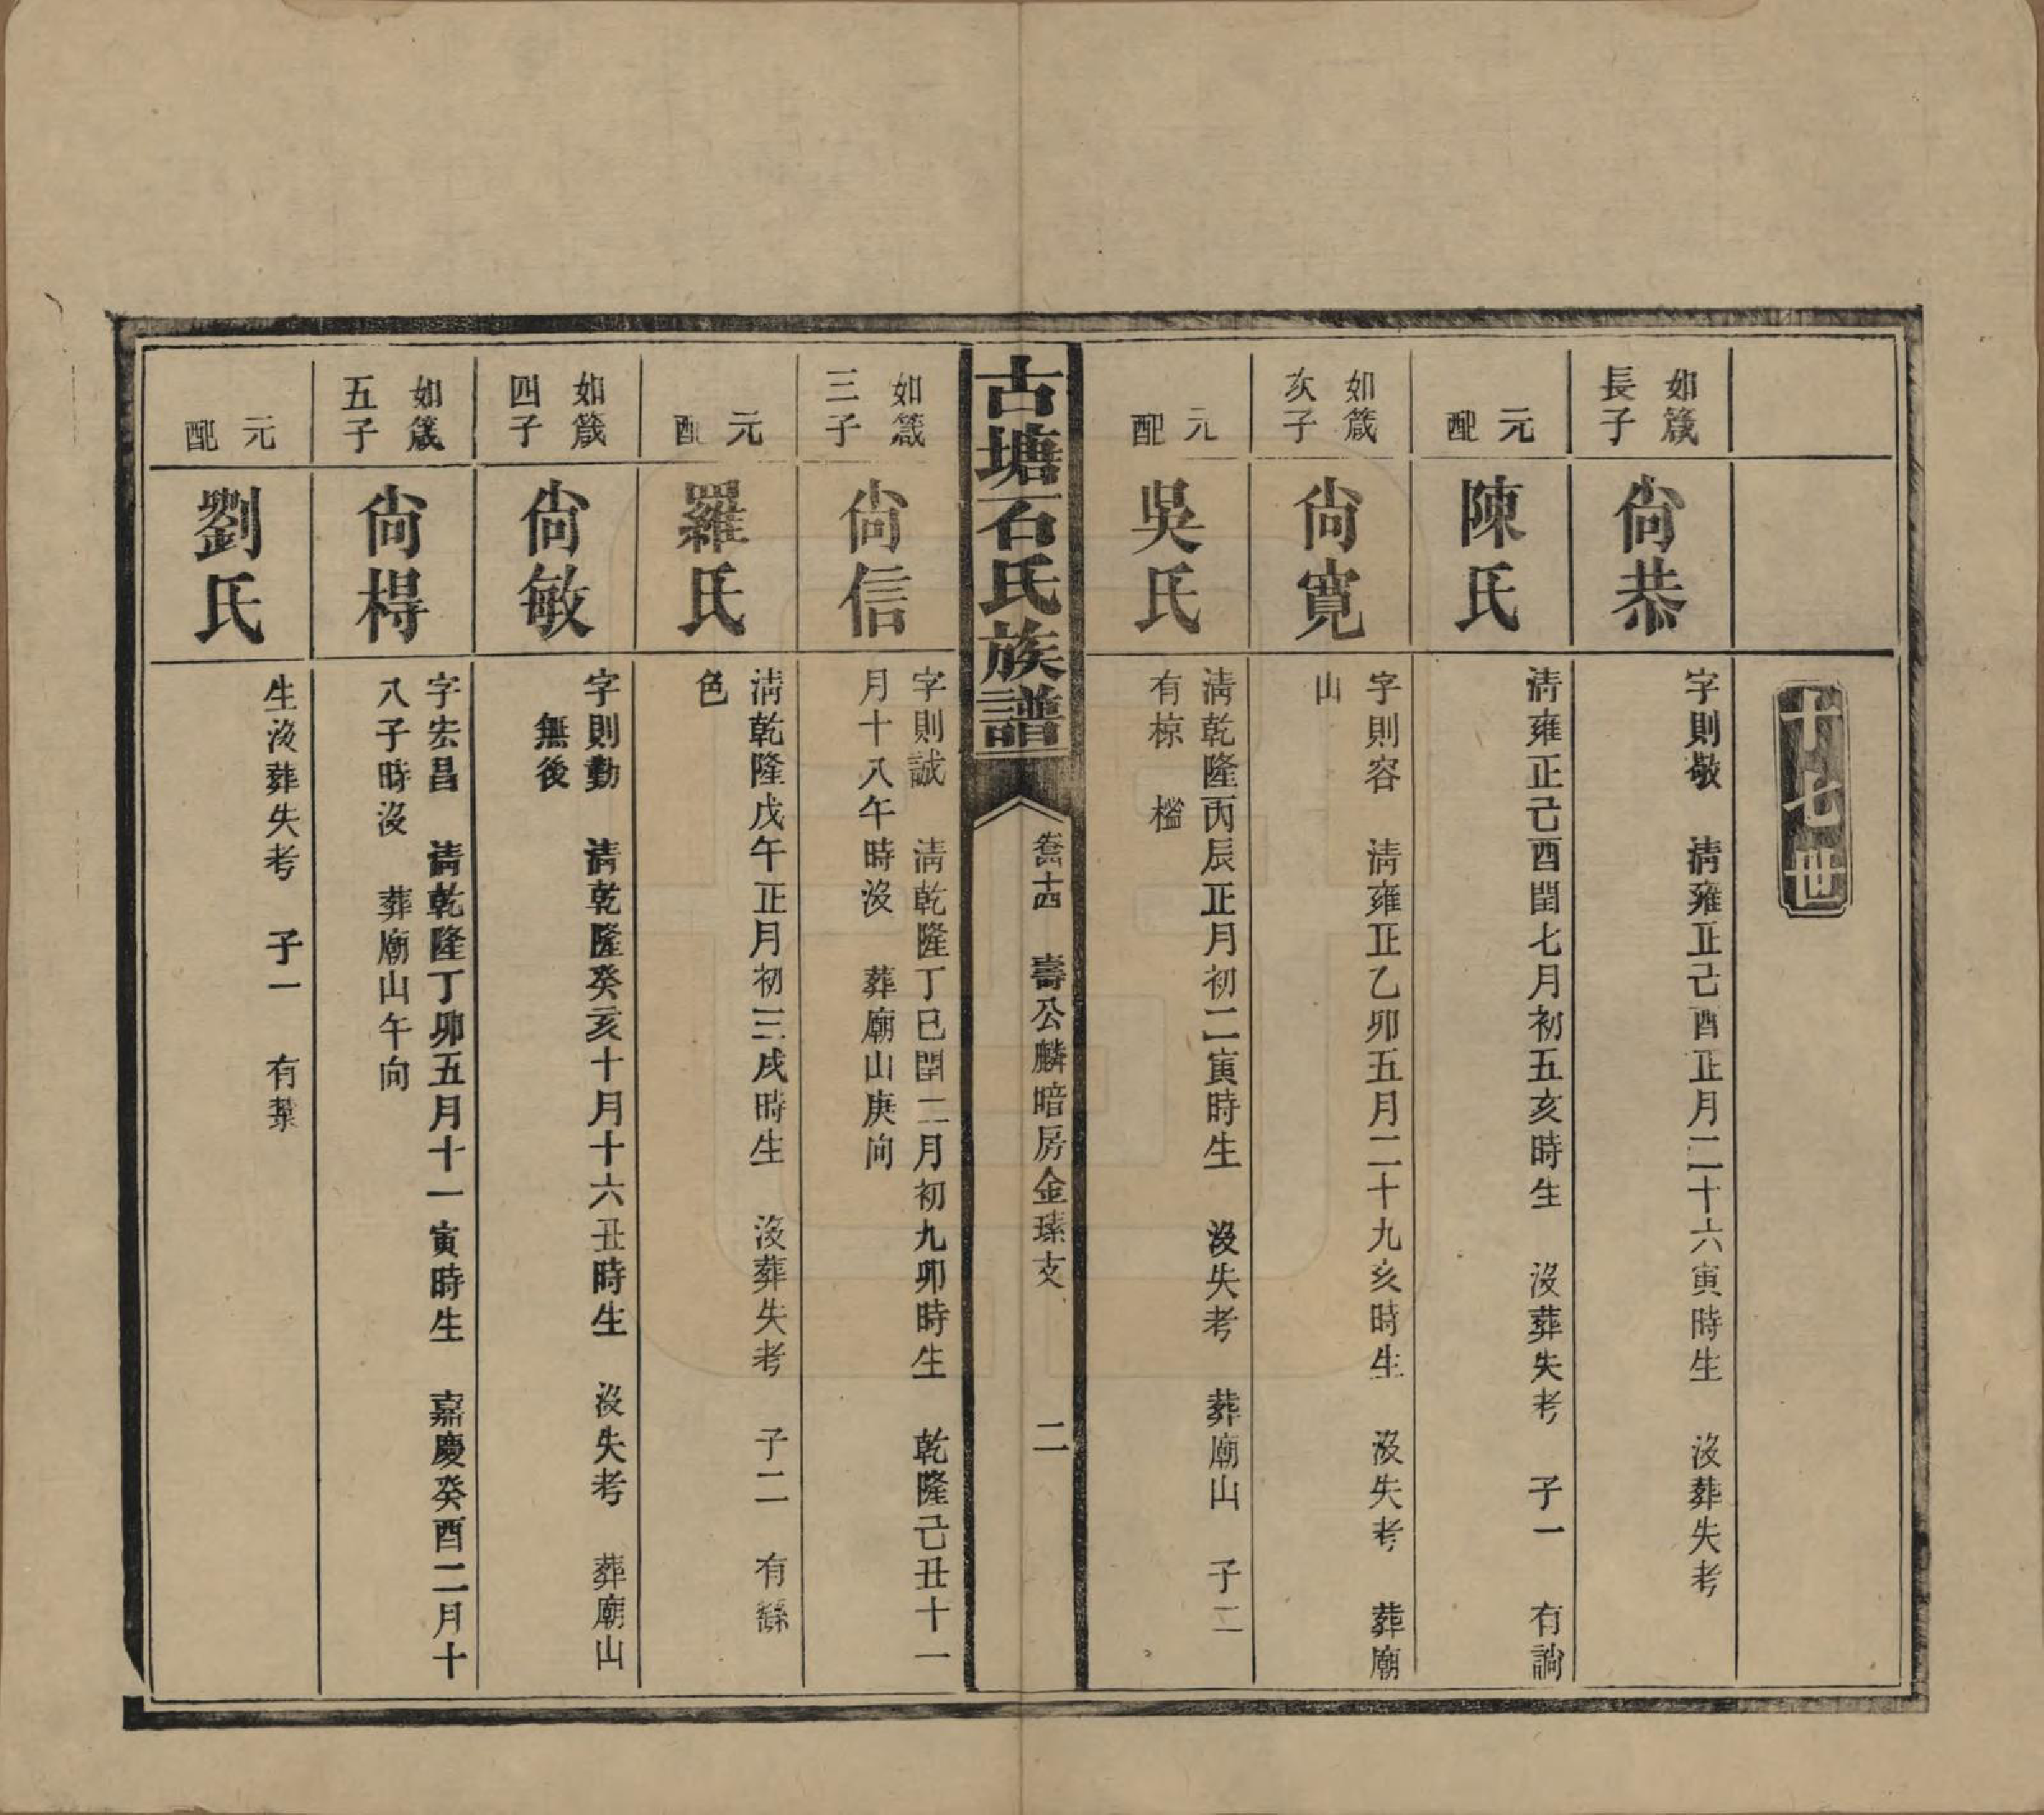 十七世
如箴
長子
尙恭
字則敬　淸雍正己酉正月二十六寅時生　沒葬失考
元配
陳氏
淸雍正己酉閏七月初五亥時生　沒葬失考　子一　有詾
如箴
次子
尙寬
字則容　淸雍正乙卯五月二十九亥時生　沒失考　葬廟
山
元配
吳氏
淸乾隆丙辰正月初二寅時生　沒失考　葬廟山　子二
有椋　櫤
古塘石氏族譜
卷十四　壽公麟暗房金瑧支　二
如箴
三子
尙信
字則誠　淸乾隆丁巳閏二月初九卯時生　乾隆己丑十一
月十八午時沒　葬廟山庚向
元配
羅氏
淸乾隆戊午正月初三戌時生　沒葬失考　子二　有繇
色
如箴
四子
尙敏
字則勤　淸乾隆癸亥十月十六丑時生　沒失考　葬廟山
無後
如箴
五子
尙棏
字宏昌　淸乾隆丁卯五月十一寅時生　嘉慶癸酉二月十
八子時沒　葬廟山午向
元配
劉氏
生沒葬失考　子一　有